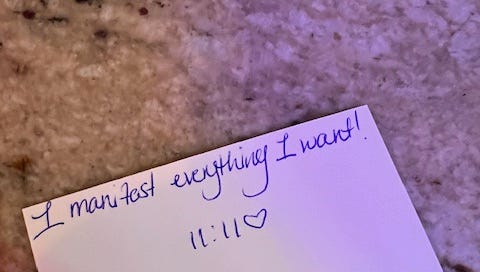 I manifest everything I want!
11:11♡